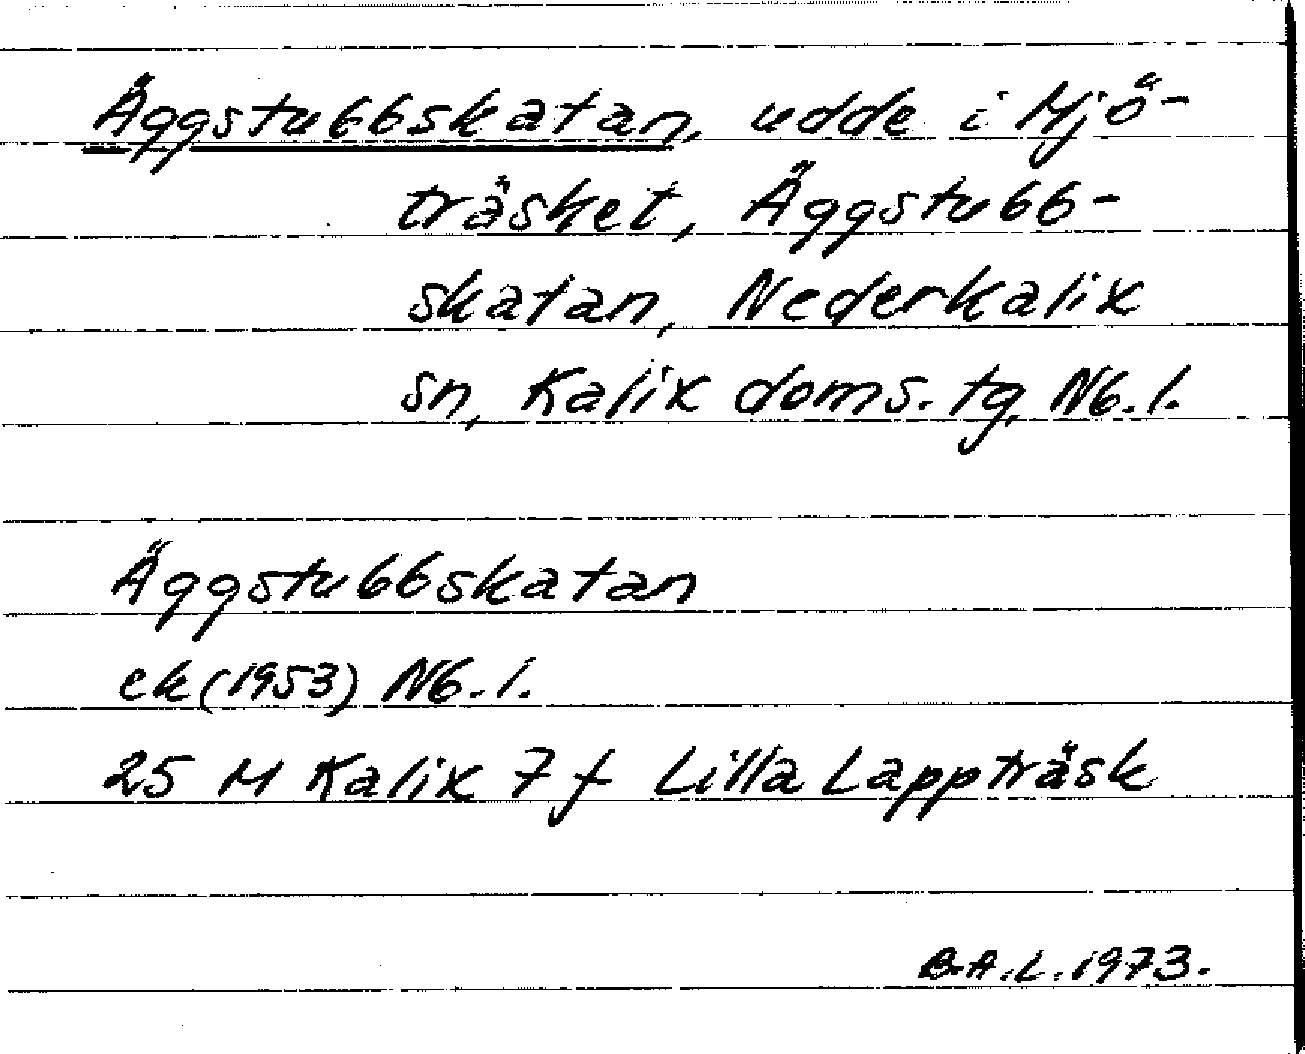 Äggstubbskatan, udde i Mjö-
träsket, Äggstubb-
skatan, Nederkalix
sn, Kalix doms. tg, Nb. l.
Äggstubbskatan
ek (1953) Nb. l.
25 M Kalix 7 f Lilla Lappträsk
B.A.L. 1973.